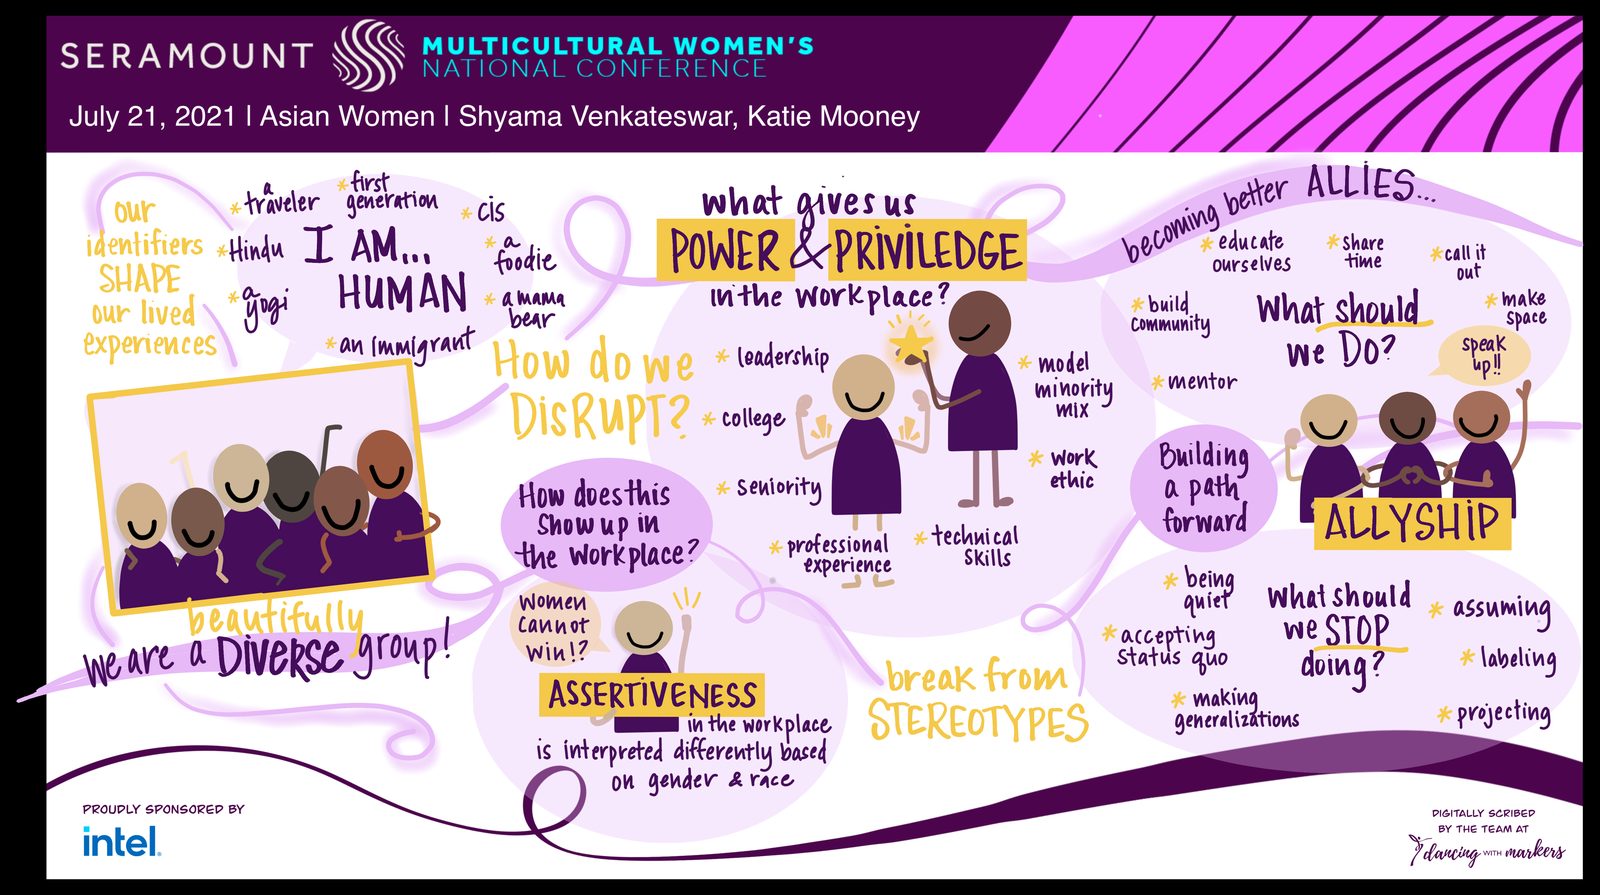 SERAMOUNT
MULTICULTURAL WOMEN'S
NATIONAL CONFERENCE
July 21, 2021 | Asian Women | Shyama Venkateswar, Katie Mooney
our
identifiers
SHAPE
our lived
experiences
* a traveler
* first
generation
* cis
* Hindu
I AM...
HUMAN
* a
foodie
* a
yogi
* a mama
bear
* an immigrant
beautifully
we are a DIVERSE group!
How do we
DISRUPT?
How does this
show up in
the workplace?
Women
cannot
win!?
ASSERTIVENESS
in the workplace
is interpreted differently based
on gender & race
what gives us
POWER & PRIVILEDGE
in the workplace?
* leadership
* college
* seniority
* professional
experience
* technical
skills
* model
minority
mix
* work
ethic
break from
STEREOTYPES
becoming better ALLIES...
* educate
ourselves
* share
time
* call it
out
* build
community
What should
we DO?
* make
space
* mentor
speak
up!!
Building
a path
forward
ALLYSHIP
* being
quiet
What should
we STOP
doing?
* assuming
* accepting
status quo
* labeling
* making
generalizations
* projecting
PROUDLY SPONSORED BY
intel.
DIGITALLY SCRIBED
BY THE TEAM AT
dancing WITH markers